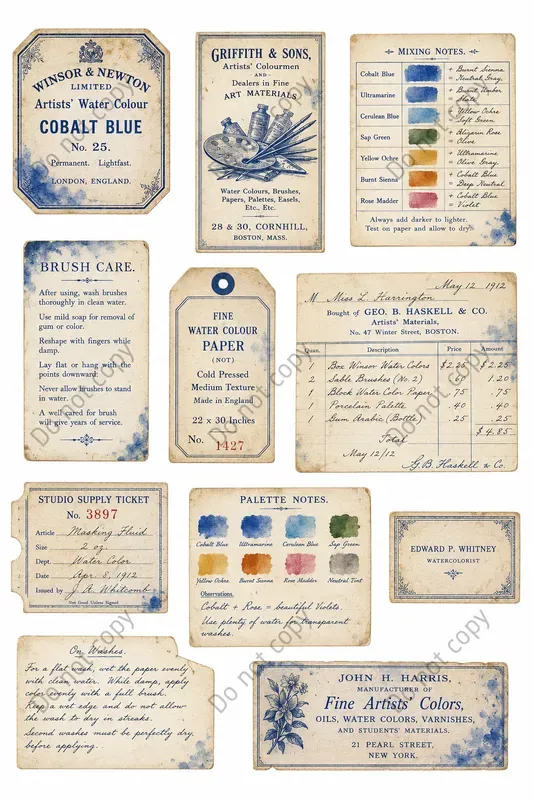 WINSOR & NEWTON
LIMITED
Artists' Water Colour
COBALT BLUE
No. 25.
Permanent. Lightfast.
LONDON, ENGLAND.
GRIFFITH & SONS,
Artists' Colourmen
AND
Dealers in Fine
ART MATERIALS
Water Colours, Brushes,
Papers, Palettes, Easels,
Etc., Etc.
28 & 30, CORNHILL,
BOSTON, MASS.
MIXING NOTES.
Cobalt Blue + Burnt Sienna = Neutral Gray
Ultramarine + Burnt Umber = Slate
Cerulean Blue + Yellow Ochre = Soft Green
Sap Green + Alizarin Rose = Olive
Yellow Ochre + Ultramarine = Olive Gray
Burnt Sienna + Cobalt Blue = Deep Neutral
Rose Madder + Cobalt Blue = Violet
Always add darker to lighter.
Test on paper and allow to dry.
BRUSH CARE.
After using, wash brushes
thoroughly in clean water.
Use mild soap for removal of
gum or color.
Reshape with fingers while
damp.
Lay flat or hang with the
points downward.
Never allow brushes to stand
in water.
A well cared for brush
will give years of service.
FINE
WATER COLOUR
PAPER
(NOT)
Cold Pressed
Medium Texture
Made in England
22 x 30 Inches
No. 1427
May 12 1912
M Miss L. Harrington
Bought of GEO. B. HASKELL & CO.
Artists' Materials,
No. 47 Winter Street, BOSTON.
Quan. Description Price Amount
1 Box Winsor Water Colors $2.25 $2.25
2 Sable Brushes (No. 2) 1.20
1 Block Water Color Paper .75 .75
1 Porcelain Palette .40 .40
1 Gum Arabic (Bottle) .25 .25
Total $4.85
May 12/12
G.B. Haskell & Co.
STUDIO SUPPLY TICKET
No. 3897
Article Masking Fluid
Size 2 oz.
Dept. Water Color
Date Apr. 8, 1912
Issued by J. A. Whitcomb
Not Good Unless Signed
PALETTE NOTES.
Cobalt Blue Ultramarine Cerulean Blue Sap Green
Yellow Ochre Burnt Sienna Rose Madder Neutral Tint
Observations.
Cobalt + Rose = beautiful Violets.
Use plenty of water for transparent
washes.
EDWARD P. WHITNEY
WATERCOLORIST
On Washes.
For a flat wash, wet the paper evenly
with clean water. While damp, apply
color evenly with a full brush.
Keep a wet edge and do not allow
the wash to dry in streaks.
Second washes must be perfectly dry
before applying.
JOHN H. HARRIS,
MANUFACTURER OF
Fine Artists' Colors,
OILS, WATER COLORS, VARNISHES,
AND STUDENTS' MATERIALS.
21 PEARL STREET,
NEW YORK.
Do not copy
Do not copy
Do not copy
Do not copy
Do not copy
Do not copy
Do not copy
Do not copy
Do not copy